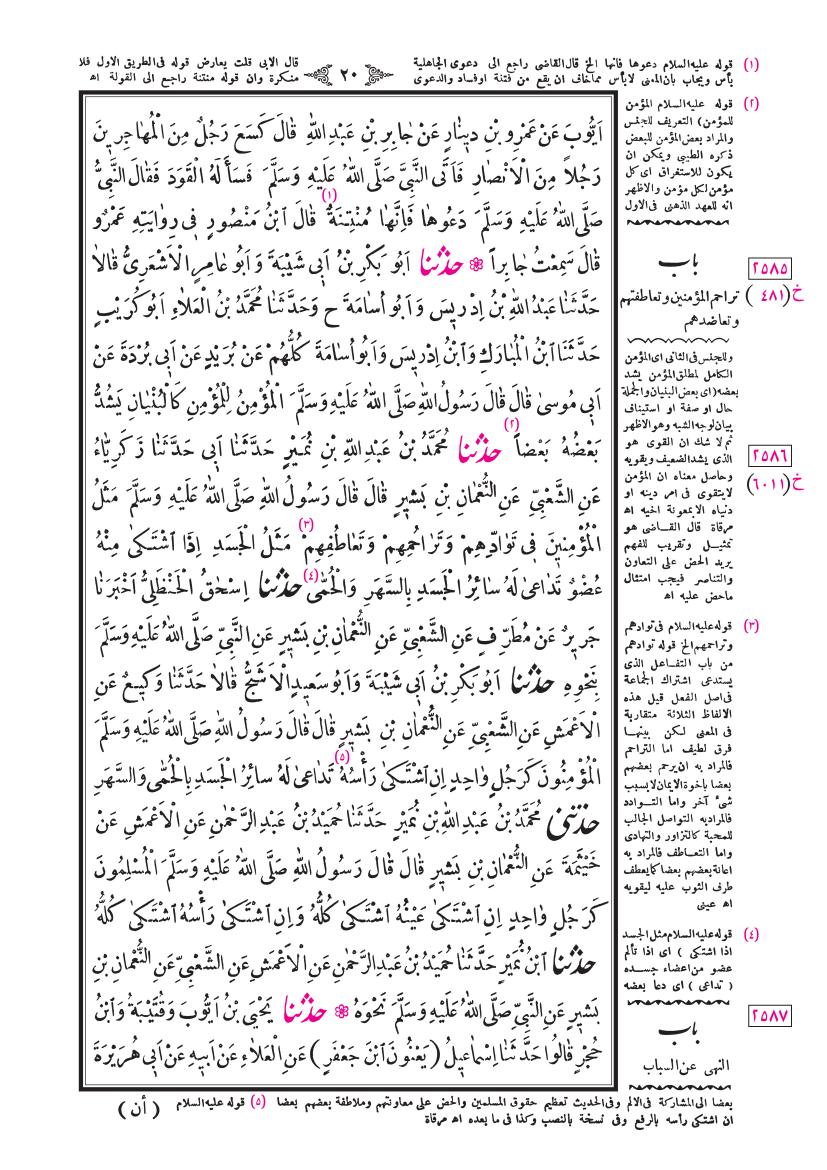 (١) قوله عليه السلام دعوها فانها الخ قال القاضى راجع الى دعوى الجاهلية
يأس ويجاب بان المعنى لا بأس مما خاف ان يقع من فتنة اوفساد والدعوى
٢٠
قال الابى قلت يعارض قوله فى الطريق الاول فلا
منكرة وان قوله منتنة راجع الى القولة اه
اَيُّوبَ عَنْ عَمْرِو بْنِ دِينَارٍ عَنْ جَابِرِ بْنِ عَبْدِ اللّٰهِ قَالَ كَسَعَ رَجُلٌ مِنَ الْمُهَاجِرِينَ
رَجُلاً مِنَ الْاَنْصَارِ فَاَتَى النَّبِيَّ صَلَّى اللّٰهُ عَلَيْهِ وَسَلَّمَ فَسَأَلَهُ الْقَوَدَ فَقَالَ النَّبِيُّ
صَلَّى اللّٰهُ عَلَيْهِ وَسَلَّمَ دَعُوهَا فَاِنَّهَا مُنْتِنَةٌ (١) قَالَ ابْنُ مَنْصُورٍ فِى رِوَايَتِهِ عَمْرٌو
قَالَ سَمِعْتُ جَابِراً ❁ حَدَّثَنَا اَبُو بَكْرِ بْنُ اَبِى شَيْبَةَ وَاَبُو عَامِرٍ الْاَشْعَرِىُّ قَالاَ
حَدَّثَنَا عَبْدُ اللّٰهِ بْنُ اِدْرِيسَ وَاَبُو اُسَامَةَ ح وَحَدَّثَنَا مُحَمَّدُ بْنُ الْعَلاَءِ اَبُو كُرَيْبٍ
حَدَّثَنَا ابْنُ الْمُبَارَكِ وَابْنُ اِدْرِيسَ وَاَبُو اُسَامَةَ كُلُّهُمْ عَنْ بُرَيْدٍ عَنْ اَبِى بُرْدَةَ عَنْ
اَبِى مُوسىٰ قَالَ قَالَ رَسُولُ اللّٰهِ صَلَّى اللّٰهُ عَلَيْهِ وَسَلَّمَ الْمُؤْمِنُ لِلْمُؤْمِنِ كَالْبُنْيَانِ يَشُدُّ
بَعْضُهُ بَعْضاً (٢) حَدَّثَنَا مُحَمَّدُ بْنُ عَبْدِ اللّٰهِ بْنِ نُمَيْرٍ حَدَّثَنَا اَبِى حَدَّثَنَا زَكَرِيَّاءُ
عَنِ الشَّعْبِىِّ عَنِ النُّعْمَانِ بْنِ بَشِيرٍ قَالَ قَالَ رَسُولُ اللّٰهِ صَلَّى اللّٰهُ عَلَيْهِ وَسَلَّمَ مَثَلُ
الْمُؤْمِنِينَ فِى تَوَادِّهِمْ وَتَرَاحُمِهِمْ وَتَعَاطُفِهِمْ (٣) مَثَلُ الْجَسَدِ اِذَا اشْتَكىٰ مِنْهُ
عُضْوٌ تَدَاعىٰ لَهُ سَائِرُ الْجَسَدِ بِالسَّهَرِ وَالْحُمّٰى (٤) حَدَّثَنَا اِسْحٰقُ الْحَنْظَلِىُّ اَخْبَرَنَا
جَرِيرٌ عَنْ مُطَرِّفٍ عَنِ الشَّعْبِىِّ عَنِ النُّعْمَانِ بْنِ بَشِيرٍ عَنِ النَّبِىِّ صَلَّى اللّٰهُ عَلَيْهِ وَسَلَّمَ
بِنَحْوِهِ حَدَّثَنَا اَبُو بَكْرِ بْنُ اَبِى شَيْبَةَ وَاَبُو سَعِيدٍ الْاَشَجُّ قَالاَ حَدَّثَنَا وَكِيعٌ عَنِ
الْاَعْمَشِ عَنِ الشَّعْبِىِّ عَنِ النُّعْمَانِ بْنِ بَشِيرٍ قَالَ قَالَ رَسُولُ اللّٰهِ صَلَّى اللّٰهُ عَلَيْهِ وَسَلَّمَ
الْمُؤْمِنُونَ كَرَجُلٍ وَاحِدٍ اِنِ اشْتَكىٰ رَأْسُهُ (٥) تَدَاعىٰ لَهُ سَائِرُ الْجَسَدِ بِالْحُمّٰى وَالسَّهَرِ
حَدَّثَنِى مُحَمَّدُ بْنُ عَبْدِ اللّٰهِ بْنِ نُمَيْرٍ حَدَّثَنَا حُمَيْدُ بْنُ عَبْدِ الرَّحْمٰنِ عَنِ الْاَعْمَشِ عَنْ
خَيْثَمَةَ عَنِ النُّعْمَانِ بْنِ بَشِيرٍ قَالَ قَالَ رَسُولُ اللّٰهِ صَلَّى اللّٰهُ عَلَيْهِ وَسَلَّمَ الْمُسْلِمُونَ
كَرَجُلٍ وَاحِدٍ اِنِ اشْتَكىٰ عَيْنُهُ اشْتَكىٰ كُلُّهُ وَاِنِ اشْتَكىٰ رَأْسُهُ اشْتَكىٰ كُلُّهُ
حَدَّثَنَا ابْنُ نُمَيْرٍ حَدَّثَنَا حُمَيْدُ بْنُ عَبْدِ الرَّحْمٰنِ عَنِ الْاَعْمَشِ عَنِ الشَّعْبِىِّ عَنِ النُّعْمَانِ بْنِ
بَشِيرٍ عَنِ النَّبِىِّ صَلَّى اللّٰهُ عَلَيْهِ وَسَلَّمَ نَحْوَهُ ❁ حَدَّثَنَا يَحْيَى بْنُ اَيُّوبَ وَقُتَيْبَةُ وَابْنُ
حُجْرٍ قَالُوا حَدَّثَنَا اِسْمَاعِيلُ (يَعْنُونَ ابْنَ جَعْفَرٍ) عَنِ الْعَلاَءِ عَنْ اَبِيهِ عَنْ اَبِى هُرَيْرَةَ
(٢) قوله عليه السلام المؤمن
للمؤمن) التعريف للجنس
والمراد بعض المؤمن للبعض
ذكره الطيبى ويمكن ان
يكون للاستغراق اى كل
مؤمن لكل مؤمن والاظهر
انه للعهد الذهنى فى الاول
باب
٢٥٨٥
خ (٤٨١)
تراحم المؤمنين وتعاطفهم
وتعاضدهم
وللجنس فى الثانى اى المؤمن
الكامل لمطلق المؤمن يشد
بعضه (اى بعض البنيان والجملة
حال او صفة او استيناف
بيان لوجه الشبه وهو الاظهر
ثم لا شك ان القوى هو
الذى يشد الضعيف ويقويه
وحاصل معناه ان المؤمن
لا يتقوى فى امر دينه او
دنياه الا بمعونة اخيه اه
مرقاة قال القاضى هو
تمثيل وتقريب للفهم
يريد الحض على التعاون
والتناصر فيجب امتثال
ماحض عليه اه
٢٥٨٦
خ (٦٠١١)
(٣) قوله عليه السلام فى توادهم
وتراحمهم الخ قوله توادهم
من باب التفاعل الذى
يستدعى اشتراك الجماعة
فى اصل الفعل قيل هذه
الالفاظ الثلاثة متقاربة
فى المعنى لكن بينها
فرق لطيف اما التراحم
فالمراد به ان يرحم بعضهم
بعضا باخوة الايمان لا بسبب
شىء آخر واما التوادد
فالمراد به التواصل الجالب
للمحبة كالتزاور والتهادى
واما التعاطف فالمراد به
اعانة بعضهم بعضا كما يعطف
طرف الثوب عليه ليقويه
اه عينى
(٤) قوله عليه السلام مثل الجسد
اذا اشتكى) اى اذا تألم
عضو من اعضاء جسده
(تداعى) اى دعا بعضه
باب
٢٥٨٧
النهى عن السباب
بعضا الى المشاركة فى الالم وفى الحديث تعظيم حقوق المسلمين والحض على معاونتهم وملاطفة بعضهم بعضا (٥) قوله عليه السلام
ان اشتكى رأسه بالرفع وفى نسخة بالنصب وكذا فى ما بعده اه مرقاة
(أن)